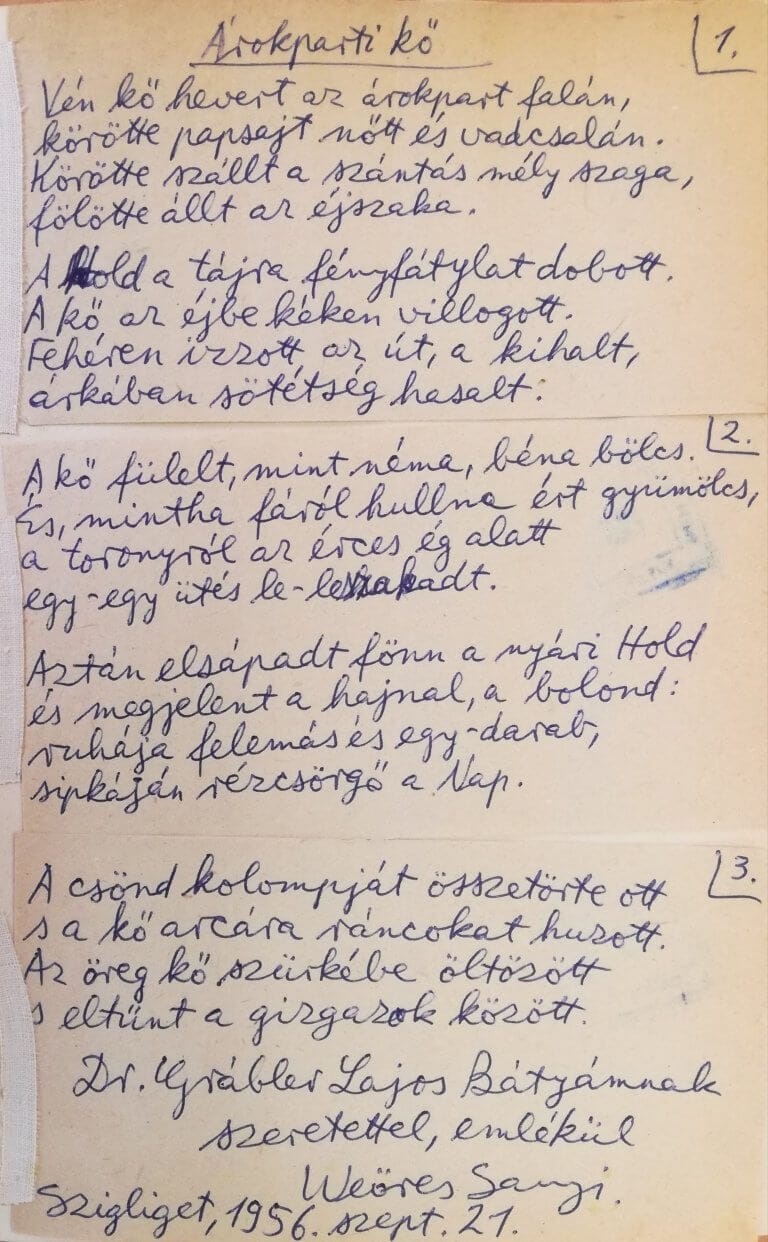 Árokparti kő
1.
Vén kő hevert az árokpart falán,
körötte papsajt nőtt és vadcsalán.
Körötte szállt a szántás mély szaga,
fölötte állt az éjszaka.
A Hold a tájra fényfátylat dobott.
A kő az éjbe kéken villogott.
Fehéren izzott az út, a kihalt,
árkában sötétség hasalt.
2.
A kő fülelt, mint néma, béna bölcs.
És, mintha fáról hullna ért gyümölcs,
a toronyról az érces ég alatt
egy-egy ütés le-leszakadt.
Aztán elsápadt fönn a nyári Hold
és megjelent a hajnal, a bolond:
ruhája felemás és egy-darab,
sipkáján rézcsörgő a Nap.
3.
A csönd kolompját összetörte ott
s a kő arcára ráncokat huzott.
Az öreg kő szürkébe öltözött
s eltünt a gizgazok között.
Dr. Grábler Lajos Bátyámnak
szeretettel, emlékül
Weöres Sanyi.
Szigliget, 1956. szept. 21.